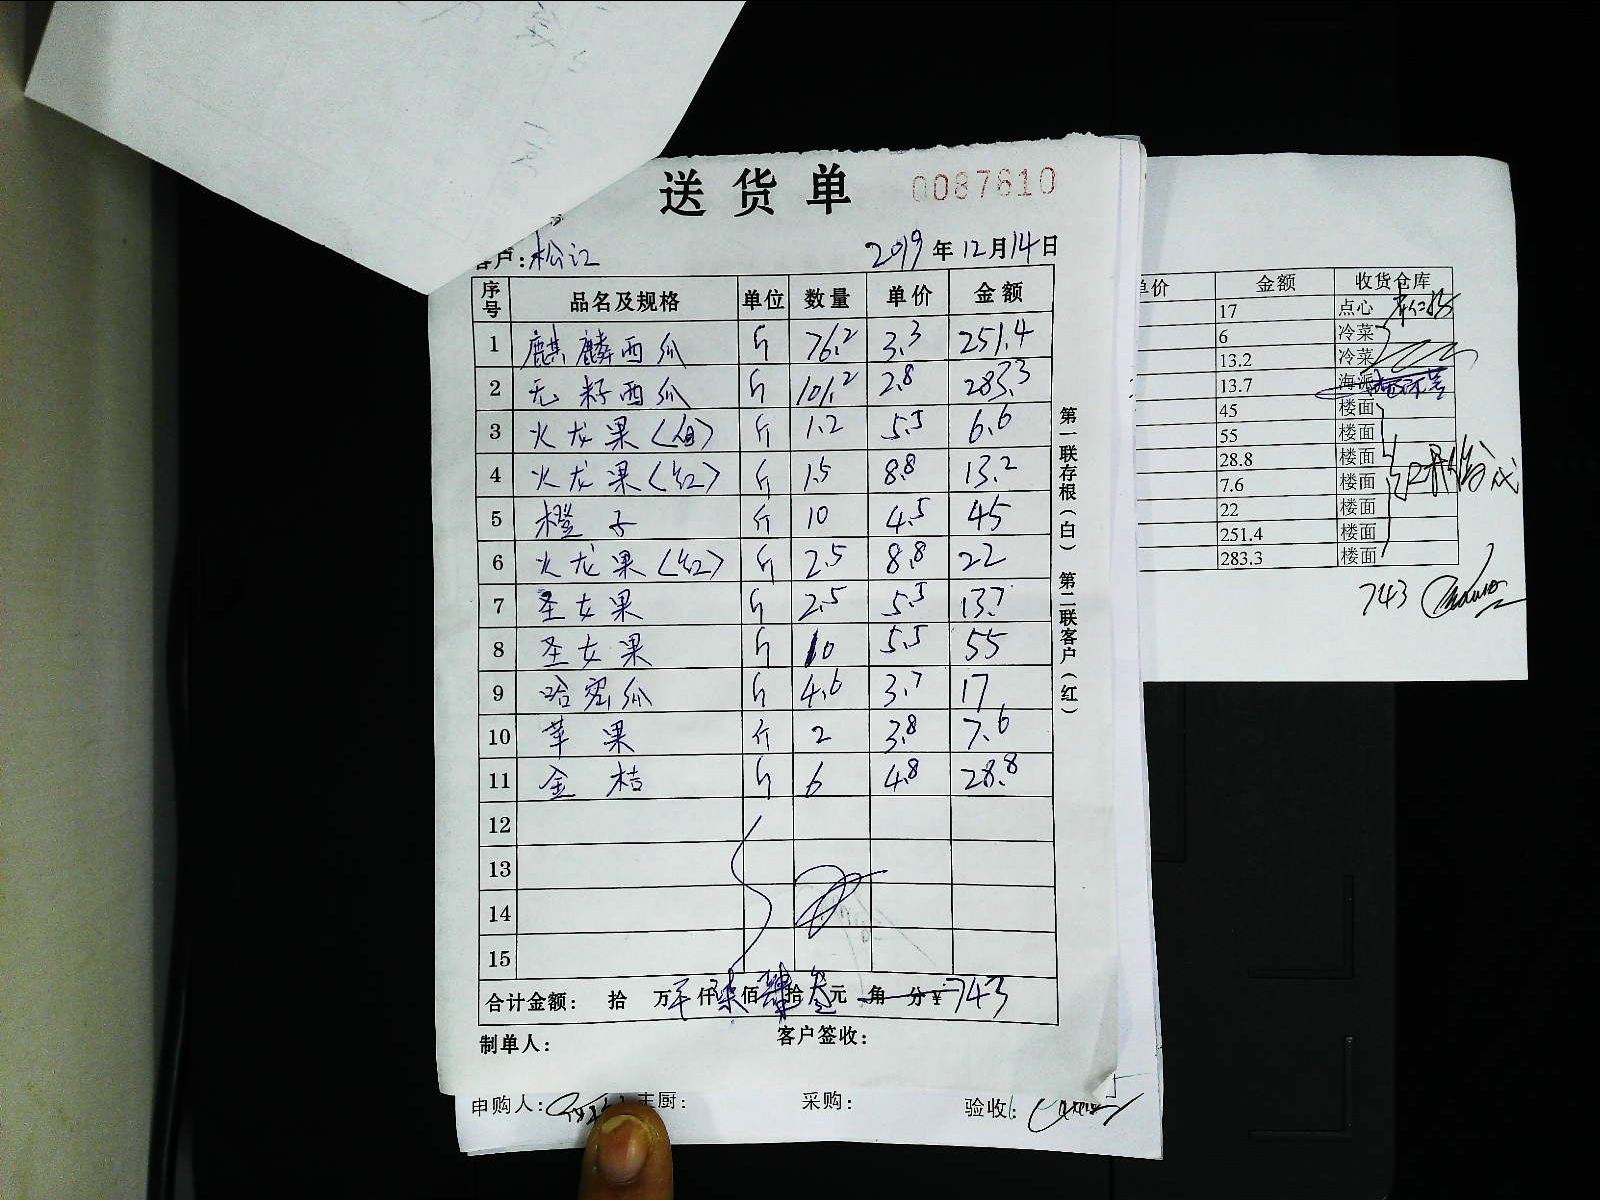 送货单 0087610
客户: 松江 2019年12月14日
序号 品名及规格 单位 数量 单价 金额
1 麒麟西瓜 斤 76.2 3.3 251.4
2 无籽西瓜 斤 101.2 2.8 283.3
3 火龙果(白) 斤 1.2 5.5 6.6
4 火龙果(红) 斤 1.5 8.8 13.2
5 橙子 斤 10 4.5 45
6 火龙果(红) 斤 2.5 8.8 22
7 圣女果 斤 2.5 5.5 13.7
8 圣女果 斤 10 5.5 55
9 哈密瓜 斤 4.6 3.7 17
10 苹果 斤 2 3.8 7.6
11 金桔 斤 6 4.8 28.8
12
13
14
15
合计金额: 拾 万 仟 柒 佰 肆 拾 叁 元 角 分 ¥ 743
制单人: 客户签收:
第一联存根(白) 第二联客户(红)
申购人: 主厨: 采购: 验收:
单价 金额 收货仓库
17 点心
6 冷菜
13.2 冷菜
13.7 海派
45 楼面
55 楼面
28.8 楼面
7.6 楼面
22 楼面
251.4 楼面
283.3 楼面
743